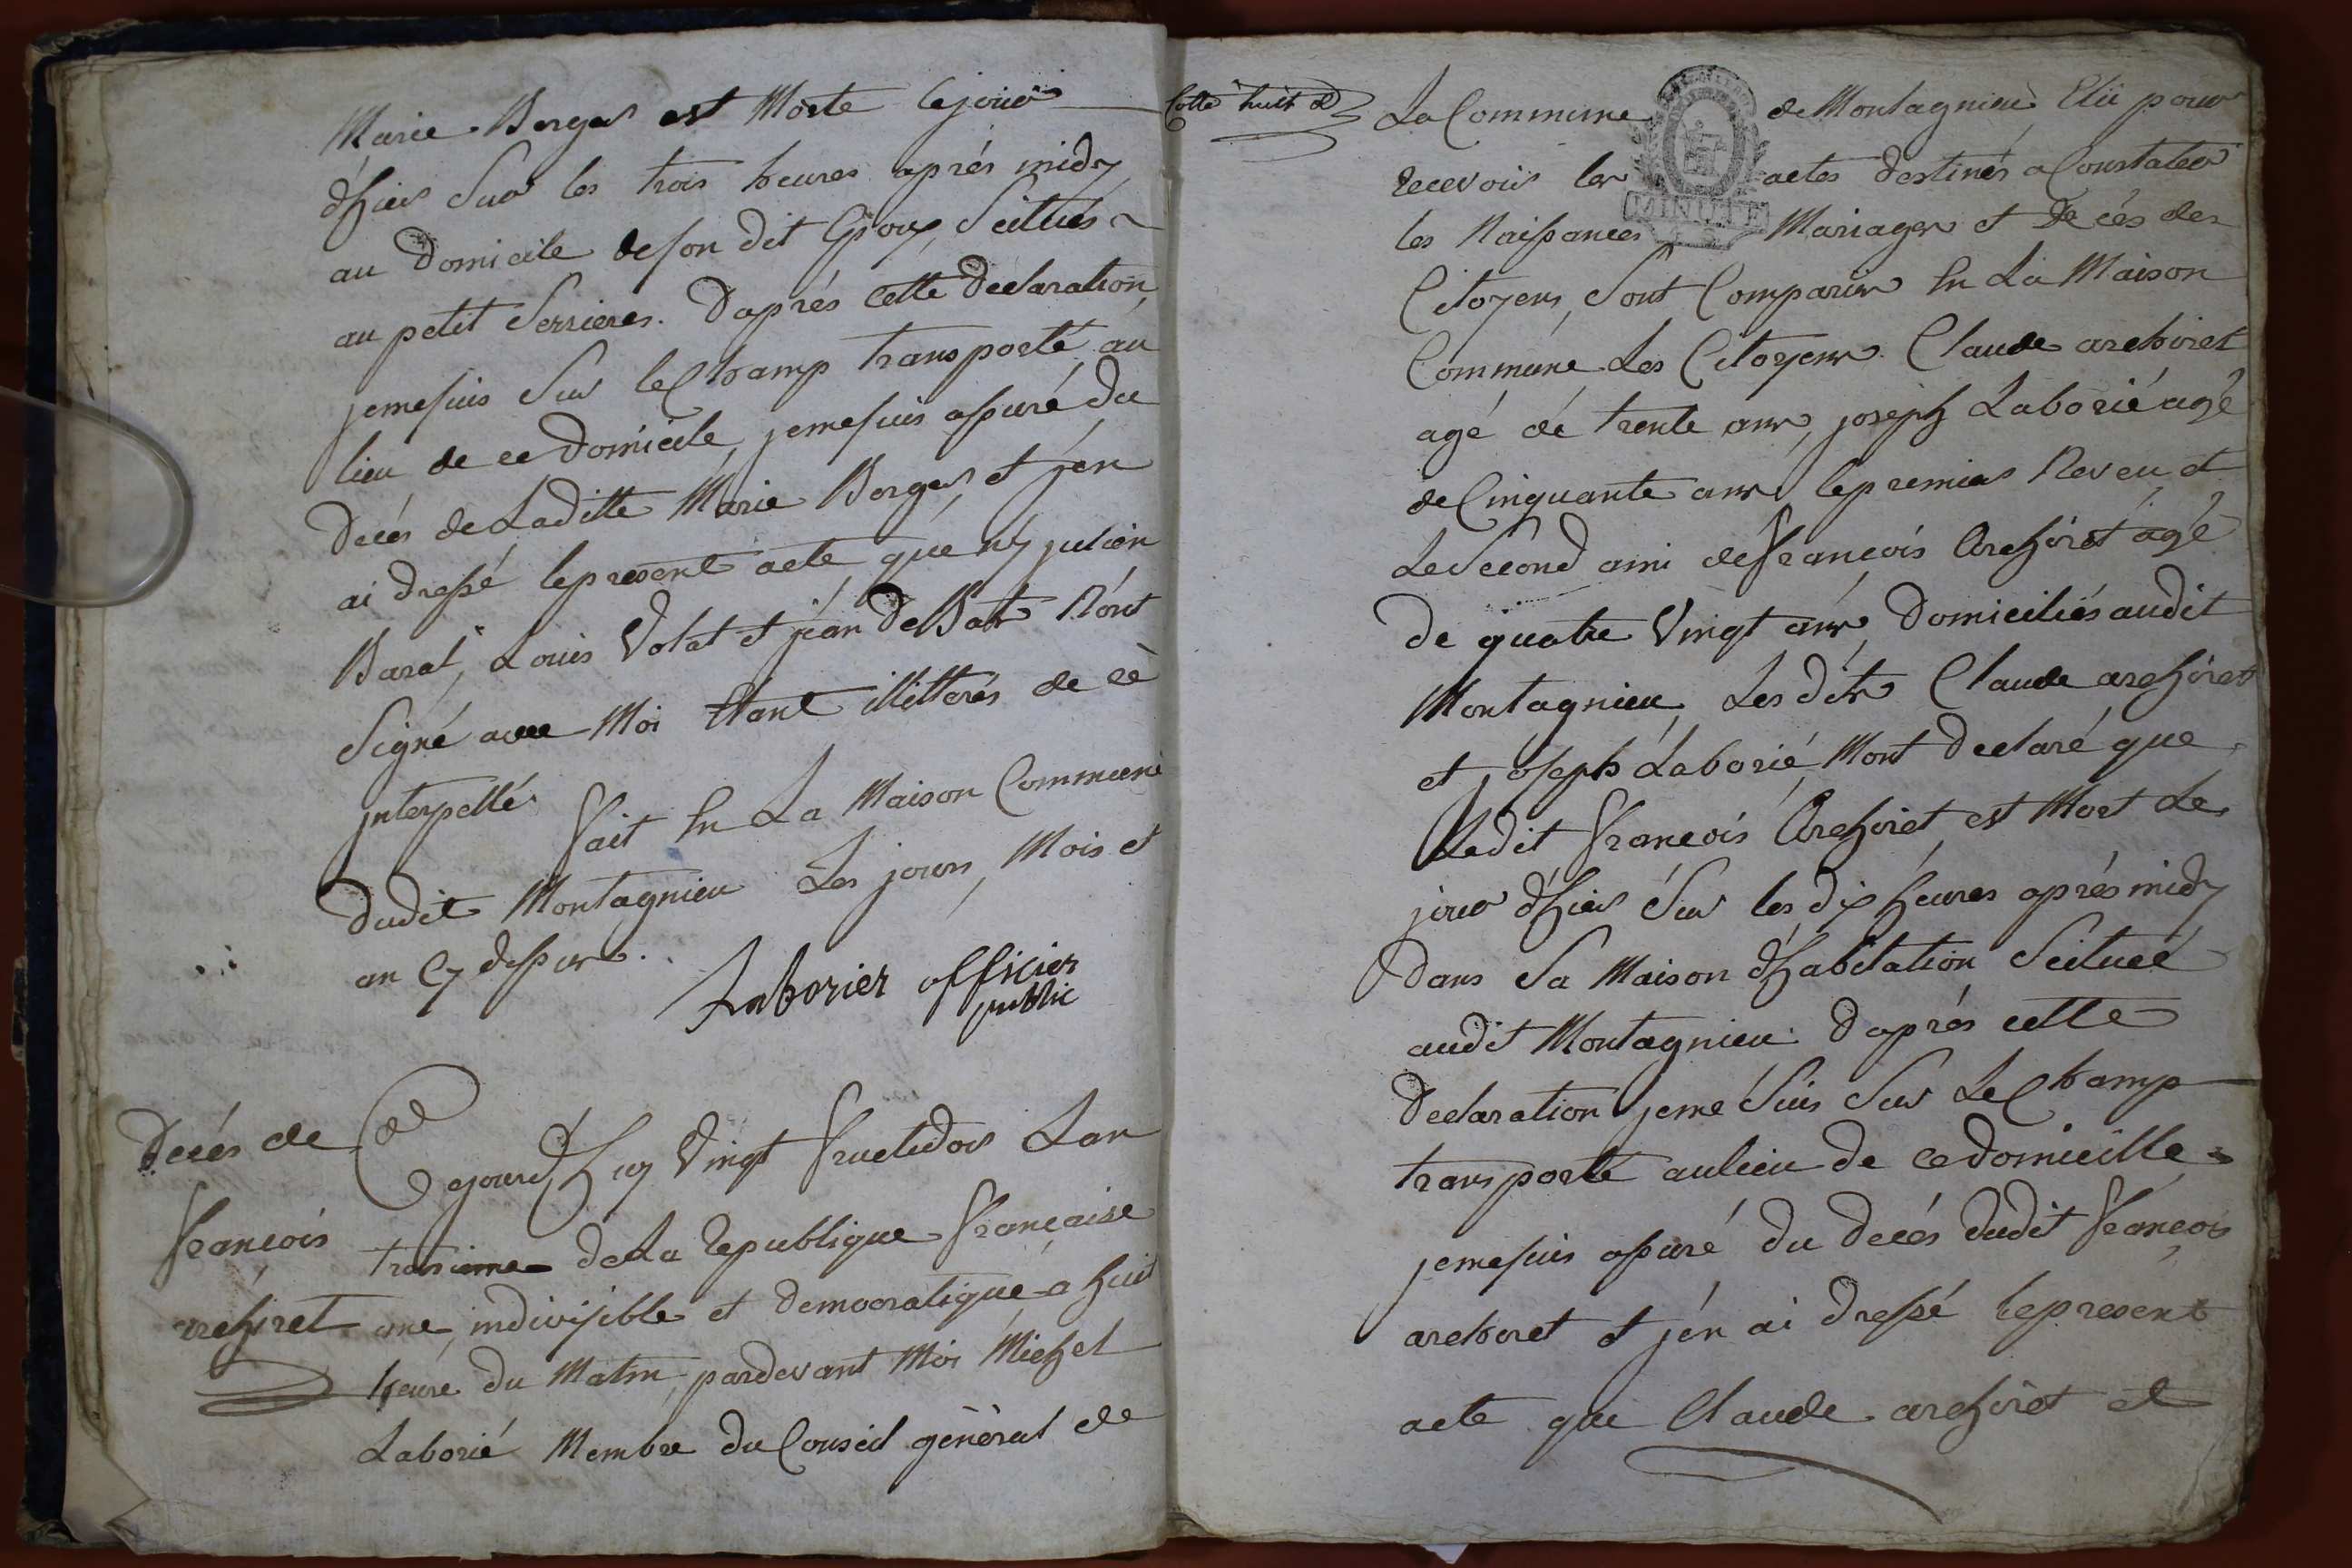 Marie Berger est Morte le jour
d'hier Sur les trois heures après midy
au Domicile de son dit Epoux Scitués
au petit Serrieres. D'après Cette Declaration
je me suis Sur le Champ transporté au
lieu de ce Domicile, je me suis assuré du
Decés de Laditte Marie Berger, et j'en
ai dressé le present acte que ny julien
Baral, Louis Volat et jean DeBatz N'ont
Signé avec Moi Etant illitterés de cè
jnterpellé. Fait En La Maison Commune
dudit Montagnieu Les jours, Mois et
an Cy dessus.
Laborier officier
public
Decés de
François
archiret
Cejourd'huy Vingt Fructidor Lan
troisieme de La Republique Française
une, indivisible et democratique a huit
heure du Matin, pardevant Moi Michel
Laborié Membre du Conseil général de
Cotté huit
La Commune de Montagnieu Elü pour
recevoir les actes destinés a Constater
MINUTE
les Naissances Mariages et Decés des
Citoyens, Sont Comparus En La Maison
Commune Les Citoyens Claude archiret
agé de trente ans, joseph Laborié agé
de Cinquante ans, le premier Neveu et
Le Second ami de François Archiret agé
de quatre Vingt ans, Domiciliés audit
Montagnieu, Les dits Claude archiret
et joseph Laborié, Mont declaré que
Ledit François Archiret, est Mort Le
jour d'hier Sur les dix heures après midy
Dans Sa Maison d'habitation Scituée
audit Montagnieu. D'après cette
Declaration je me Suis Sur Le Champ
transporté au lieu de ce domicille
je me suis assuré du Decés dudit François
archoret et j'en ai dressé le present
acte que Claude archirèt et